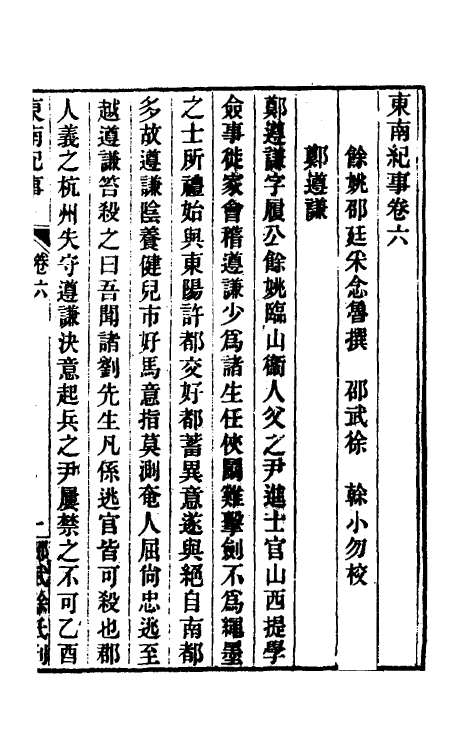 東南紀事卷六
餘姚邵廷采念魯撰　邵武徐　榦小勿校
鄭遵謙
鄭遵謙字履公餘姚臨山衞人父之尹進士官山西提學
僉事徙家會稽遵謙少爲諸生任俠鬬雞擊劍不爲繩墨
之士所禮始與東陽許都交好都蓄異意遂與絕自南都
多故遵謙陰養健兒市好馬意指莫測奄人屈尙忠逃至
越遵謙笞殺之曰吾聞諸劉先生凡係逃官皆可殺也郡
人義之杭州失守遵謙決意起兵之尹屢禁之不可乙酉
東南紀事　卷六　一　邵武徐氏刊